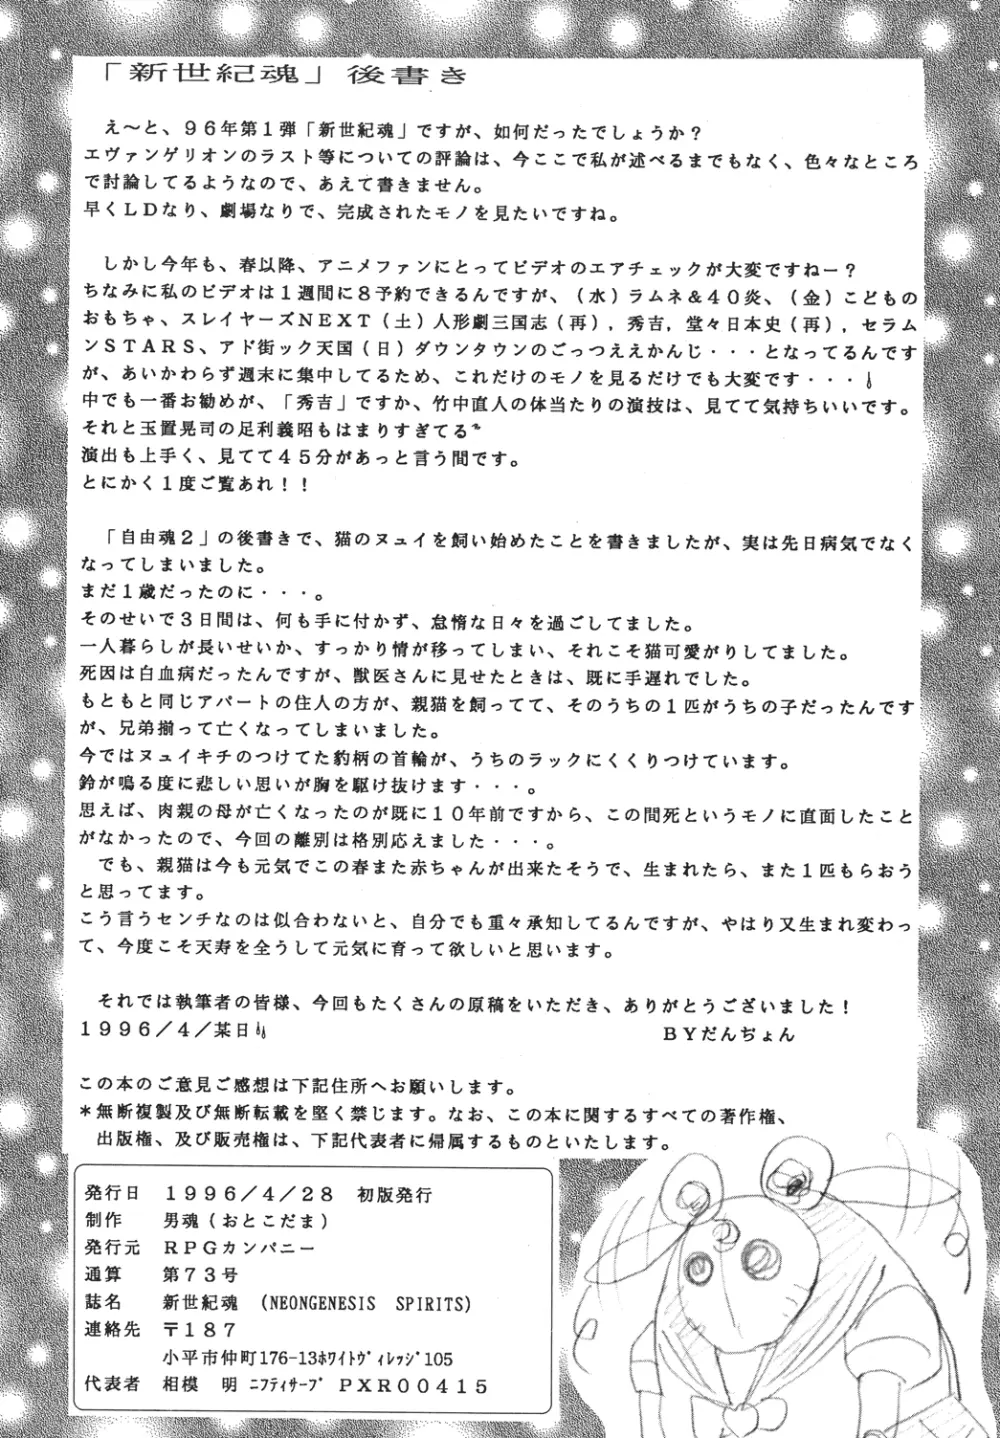 「新世紀魂」後書き
え～と、９６年第１弾「新世紀魂」ですが、如何だったでしょうか？
エヴァンゲリオンのラスト等についての評論は、今ここで私が述べるまでもなく、色々なところ
で討論してるようなので、あえて書きません。
早くＬＤなり、劇場なりで、完成されたモノを見たいですね。
しかし今年も、春以降、アニメファンにとってビデオのエアチェックが大変ですねー？
ちなみに私のビデオは１週間に８予約できるんですが、（水）ラムネ＆４０炎、（金）こどもの
おもちゃ、スレイヤーズＮＥＸＴ（土）人形劇三国志（再），秀吉，堂々日本史（再），セラム
ンＳＴＡＲＳ、アド街ック天国（日）ダウンタウンのごっつええかんじ・・・となってるんです
が、あいかわらず週末に集中してるため、これだけのモノを見るだけでも大変です・・・
中でも一番お勧めが、「秀吉」ですか、竹中直人の体当たりの演技は、見てて気持ちいいです。
それと玉置晃司の足利義昭もはまりすぎてる
演出も上手く、見てて４５分があっと言う間です。
とにかく１度ご覧あれ！！
「自由魂２」の後書きで、猫のヌュイを飼い始めたことを書きましたが、実は先日病気でなく
なってしまいました。
まだ１歳だったのに・・・。
そのせいで３日間は、何も手に付かず、怠惰な日々を過ごしてました。
一人暮らしが長いせいか、すっかり情が移ってしまい、それこそ猫可愛がりしてました。
死因は白血病だったんですが、獣医さんに見せたときは、既に手遅れでした。
もともと同じアパートの住人の方が、親猫を飼ってて、そのうちの１匹がうちの子だったんです
が、兄弟揃って亡くなってしまいました。
今ではヌュイキチのつけてた豹柄の首輪が、うちのラックにくくりつけています。
鈴が鳴る度に悲しい思いが胸を駆け抜けます・・・。
思えば、肉親の母が亡くなったのが既に１０年前ですから、この間死というモノに直面したこと
がなかったので、今回の離別は格別応えました・・・。
でも、親猫は今も元気でこの春また赤ちゃんが出来たそうで、生まれたら、また１匹もらおう
と思ってます。
こう言うセンチなのは似合わないと、自分でも重々承知してるんですが、やはり又生まれ変わっ
て、今度こそ天寿を全うして元気に育って欲しいと思います。
それでは執筆者の皆様、今回もたくさんの原稿をいただき、ありがとうございました！
１９９６／４／某日 ＢＹだんぢょん
この本のご意見ご感想は下記住所へお願いします。
＊無断複製及び無断転載を堅く禁じます。なお、この本に関するすべての著作権、
出版権、及び販売権は、下記代表者に帰属するものといたします。
発行日 １９９６／４／２８ 初版発行
制作 男魂（おとこだま）
発行元 ＲＰＧカンパニー
通算 第７３号
誌名 新世紀魂 (NEONGENESIS SPIRITS)
連絡先 〒１８７
小平市仲町176-13ﾎﾜｲﾄｳﾞｨﾚｯｼﾞ105
代表者 相模 明 ﾆﾌﾃｨｻｰﾌﾞ ＰＸＲ００４１５